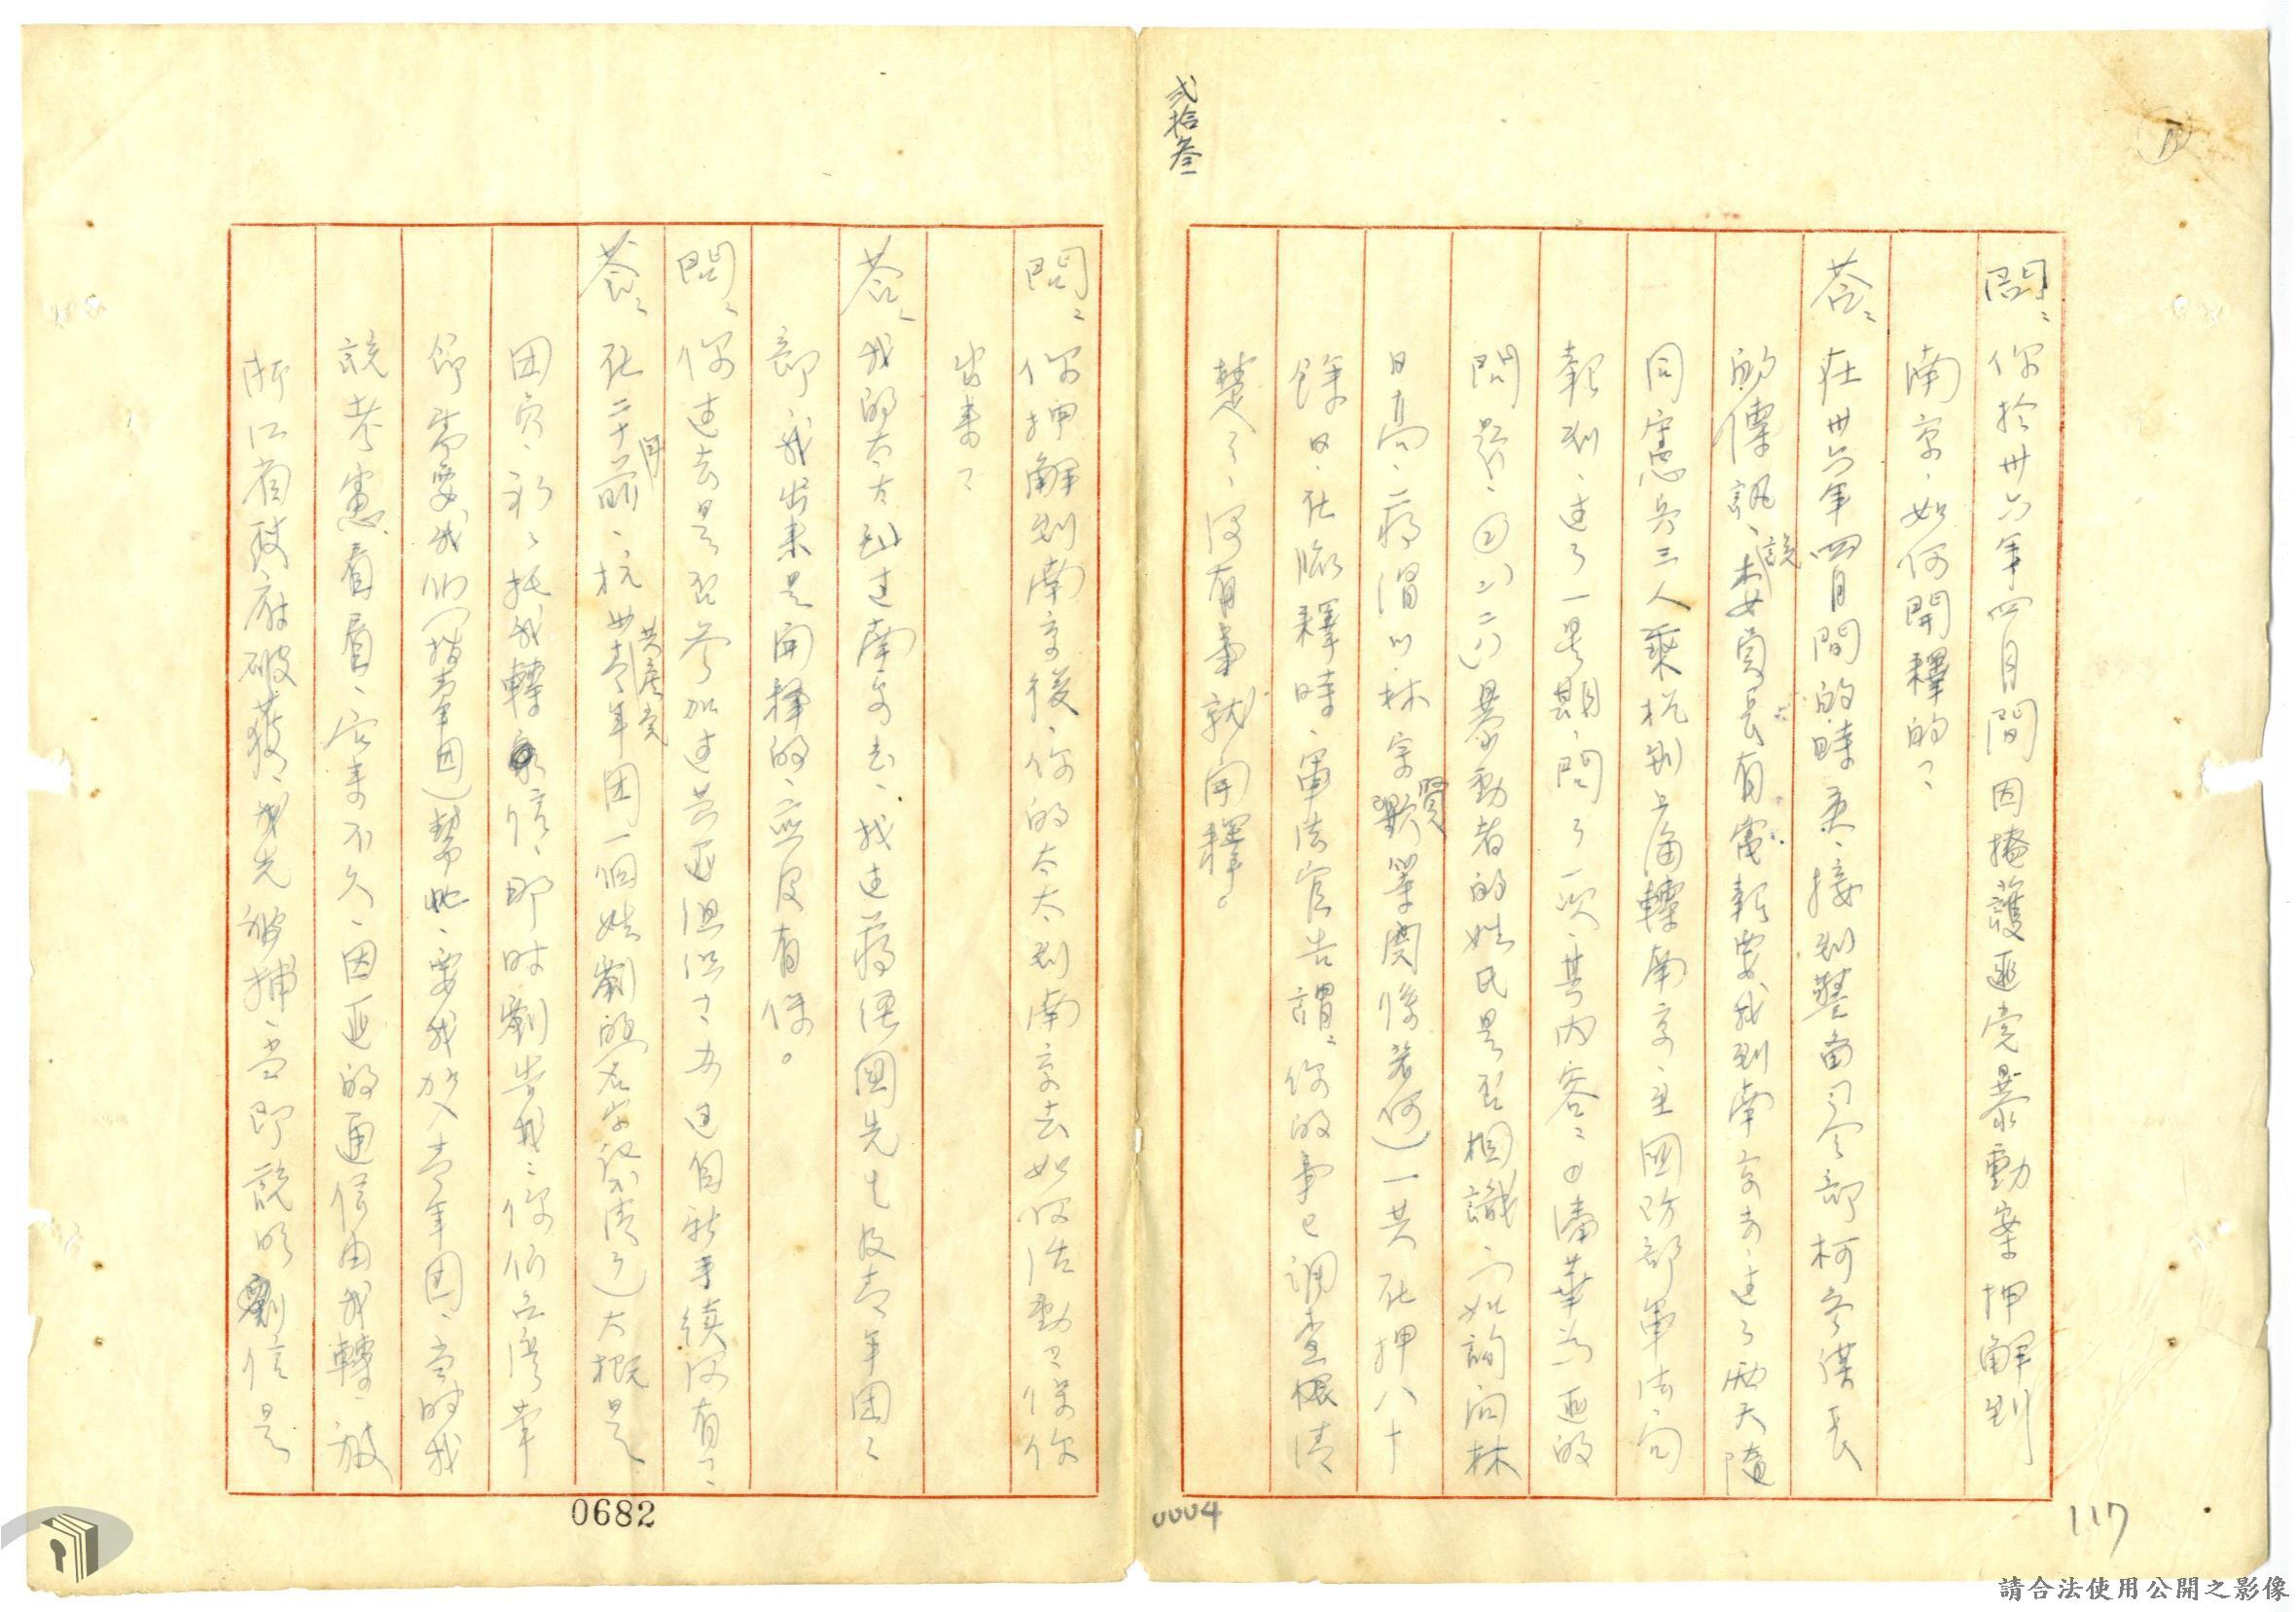 弍拾叁
問：你於卅六年四月間因掩護匪党暴動案押解到
南京，如何開釋的？
答：在卅六年四月間的時候，接到警备司令部柯参謀長
的傳訊，說委員長有電報要我到南京去，过了兩天随
同憲兵三人乘机到上海轉南京，至國防部軍法局
報到，过了一星期，問了一次，其內容：①潘華為匪的
問題，②暴動者的姓氏是否相識（如詢問林
日高、蔣渭川、林宗賢等関係若何）一共在押八十
餘日，在臨釋時，軍法官告謂：你的事已調查很清
楚了，没有事就開釋。
問：你押解到南京後，你的太太到南京去如何活動？保你
出来？
答：我的太太到过南京去，找过蔣經國先生及青年團
部，我出来是開釋的，並没有保。
問：你过去是否参加过共匪組织？办过自新手續没有？
答：在二十年前，杭州共产党青年團一個姓劉的（名字記不清了）大概是
團員，初初托我轉信，那时劉告我：你们台灣革
命需要我们（指青年團）幫忙，要我加入青年團，当时我
說考慮看看，後来不久，因匪的通信由我轉，被
浙江省政府破獲，我先被捕，当即說明劉信是
0682
0004
117
請合法使用公開之影像